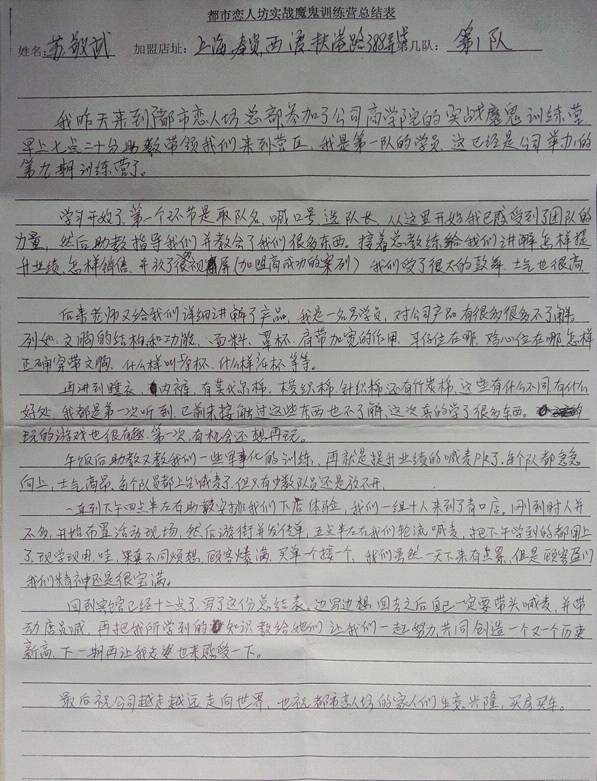 都市恋人坊实战魔鬼训练营总结表
姓名:苏敬武 加盟店址:上海,奉贤西渡扶港路388弄 第几队:第1队
我昨天来到都市恋人坊总部参加了公司商学院的实战魔鬼训练营
早上七点二十分助教带领我们来到营区,我是第一队的学员 这已经是公司举办的
第九期训练营了。
学习开始了第一个环节是取队名,喊口号,选队长,从这里开始我已感受到了团队的
力量,然后助教指导我们并教会了我们很多东西,接着总教练给我们讲解怎样提
升业绩、怎样销售,并放了很视屏(加盟商成功的案列)我们受了很大的鼓舞,士气也很高
后来老师又给我们详细讲解了产品,我是一名男学员,对公司产品有很多很多不了解。
列如:文胸的结构和功能、面料、罩杯、肩带加宽的作用、耳仔位在哪,鸡心位在哪,怎样
正确穿带文胸,什么样叫 杯,什么样 杯等等。
再讲到睡衣,内裤,有莫代尔棉,梭织棉,针织棉,还有竹炭棉,这些有什么不同有什么
好处,我都是第一次听到,已前未接触过这些东西也不了解,这次真的学了很多东西。
玩的游戏也很有趣,第一次,有机会还想再玩。
午饭后助教又教我们一些军事化的训练,再就是提升业绩的喊麦PK了,每个队都
向上,士气高昂,每个队员都上台喊麦了,但只有少数队员还是放不开,
一直到下午四点半左右助教安排我们下店体验,我们一组十人来到了 店,刚到时人并
不多,开始布置活动现场,然后游街并发传单,五点半左右我们轮流喊麦,把下午学到的都用上
了,现学现用,哇,果真不同烦想,顾客爆满,买单一个接一个,我们虽然一天下来有点累,但是顾客盈门
我们精神还是很宝满。
回到宾馆已经十二点了,写了这份总结表,边写边想,回去之后自己一定要带头喊麦,并带
动店员喊,再把我所学到的知识教给她们让我们一起努力,共同创造一个又一个历史
新高,下一期再让我老婆也来感受一下。
最后祝公司越走越远走向世界,也祝都市恋人坊的家人们生意兴隆,买房买车。